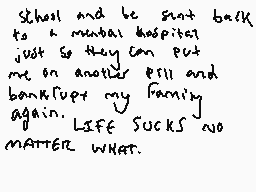 school and be sent back
to a mental hospital
just so they can put
me on another pill and
bankrupt my family
again.
LIFE SUCKS NO
MATTER WHAT.